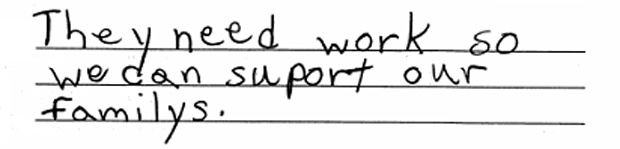 They need work so
we can suport our
familys.